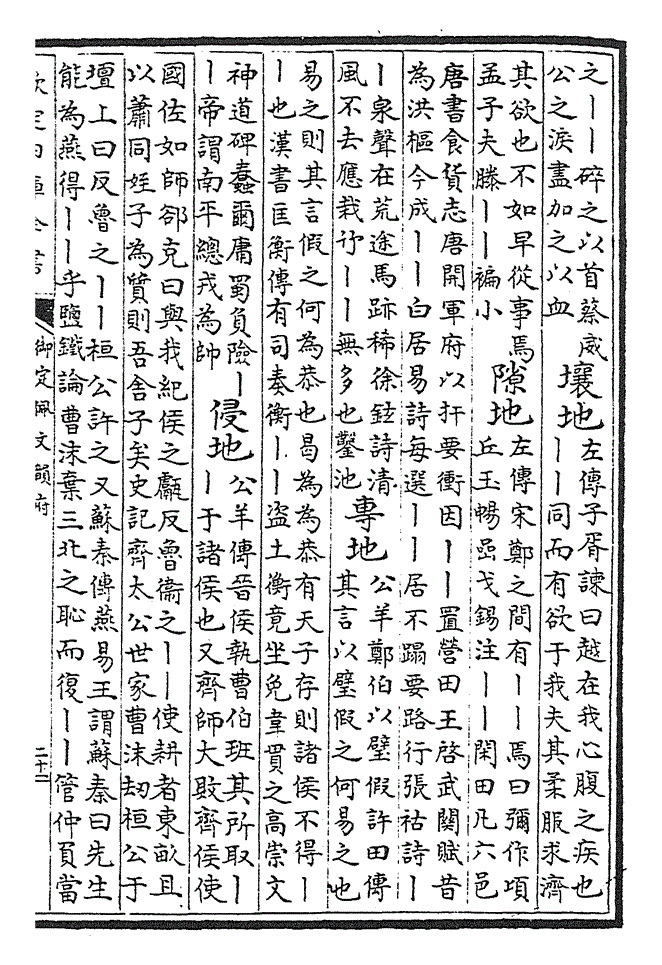 之｜｜碎之以首蔡威
公之淚盡加之以血
壤地
左傳子胥諫曰越在我心腹之疾也
｜｜同而有欲于我夫其柔服求濟
其欲也不如早從事焉
孟子夫滕｜｜褊小
隙地
左傳宋鄭之間有｜｜焉曰彌作項
丘玉暢嵒戈錫注｜｜閑田凡六邑
唐書食貨志唐開軍府以扞要衝因｜｜置營田王啓武關賦昔
為洪樞今成｜｜白居易詩每選｜｜居不蹋要路行張祜詩｜
｜泉聲在荒途馬跡稀徐鉉詩清
風不去應栽竹｜｜無多也鑿池
專地
公羊鄭伯以璧假許田傳
其言以璧假之何易之也
易之則其言假之何為恭也曷為為恭有天子存則諸侯不得｜
｜也漢書匡衡傳有司奏衡｜｜盗土衡竟坐免韋貫之高崇文
神道碑蠢爾庸蜀負險｜
｜帝謂南平總戎為帥
侵地
公羊傳晉侯執曹伯班其所取｜
｜于諸侯也又齊師大敗齊侯使
國佐如師郤克曰與我紀侯之甗反魯衛之｜｜使耕者東畝且
以蕭同姪子為質則吾舍子矣史記齊太公世家曹沫劫桓公于
壇上曰反魯之｜｜桓公許之又蘇秦傳燕易王謂蘇秦曰先生
能為燕得｜｜乎鹽鐵論曹沫棄三北之恥而復｜｜管仲負當
欽定四庫全書
御定佩文韻府
二十二